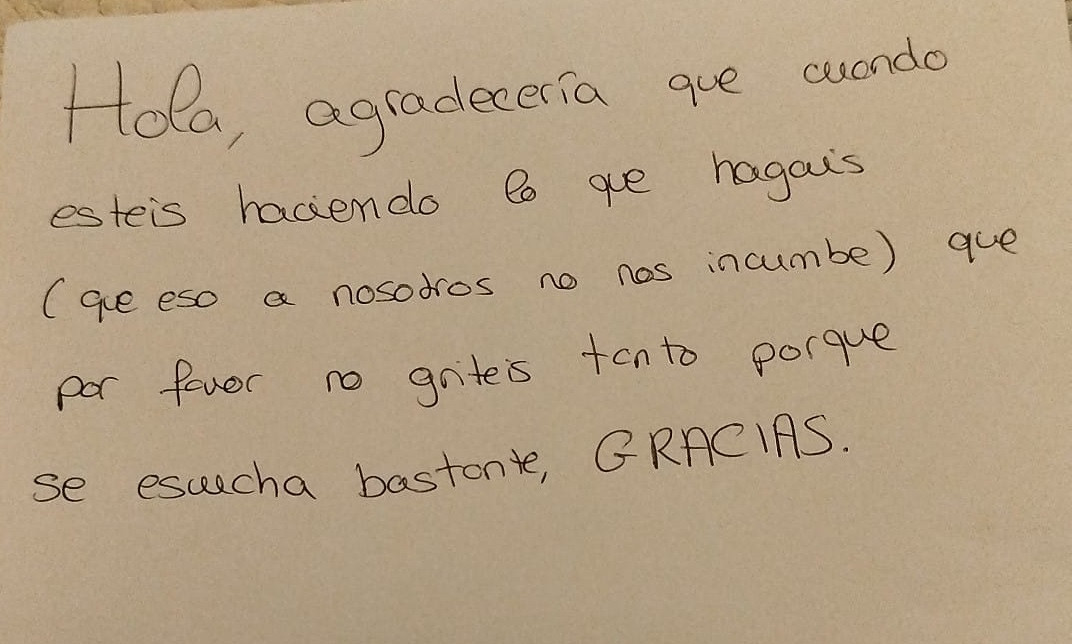 Hola, agradecería que cuando
esteis haciendo lo que hagais
(que eso a nosotros no nos incumbe) que
por favor no griteis tanto porque
se escucha bastante, GRACIAS.